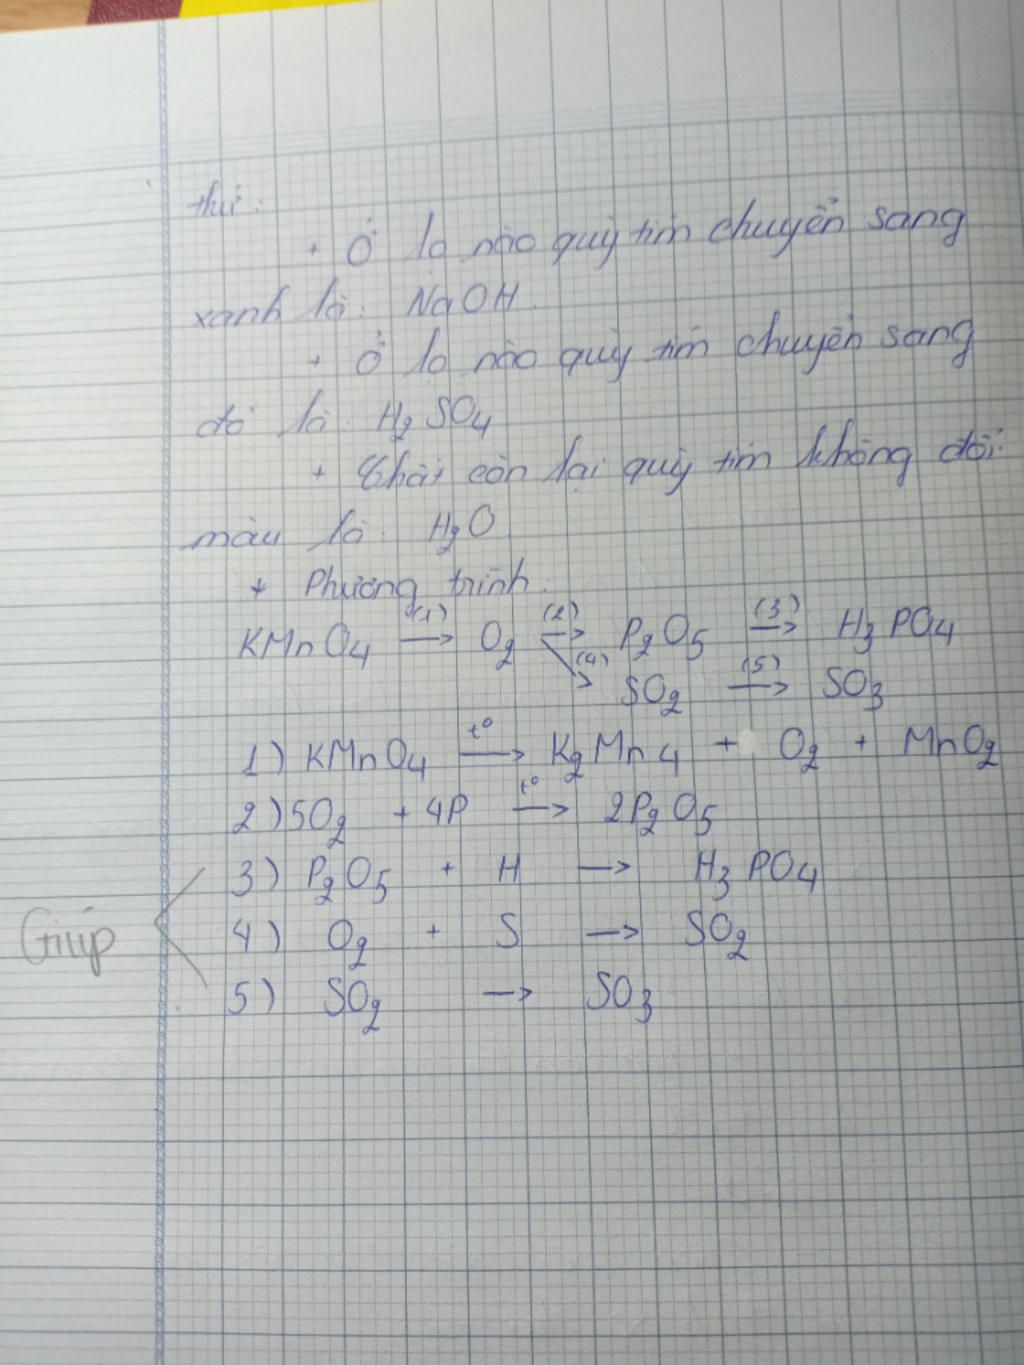 thử:
+ Ở lọ nào quỳ tím chuyển sang
xanh là: NaOH.
+ Ở lọ nào quỳ tím chuyển sang
đỏ là: H₂SO₄
+ Chất còn lại quỳ tím không đổi
màu là: H₂O
+ Phương trình.
KMnO₄ →(1) O₂ →(2) P₂O₅ →(3) H₃PO₄
→(4) SO₂ →(5) SO₃
1) KMnO₄ →t° K₂Mn₄ + O₂ + MnO₂
2) 5O₂ + 4P →t° 2P₂O₅
3) P₂O₅ + H → H₃PO₄
Giúp
4) O₂ + S → SO₂
5) SO₂ → SO₃